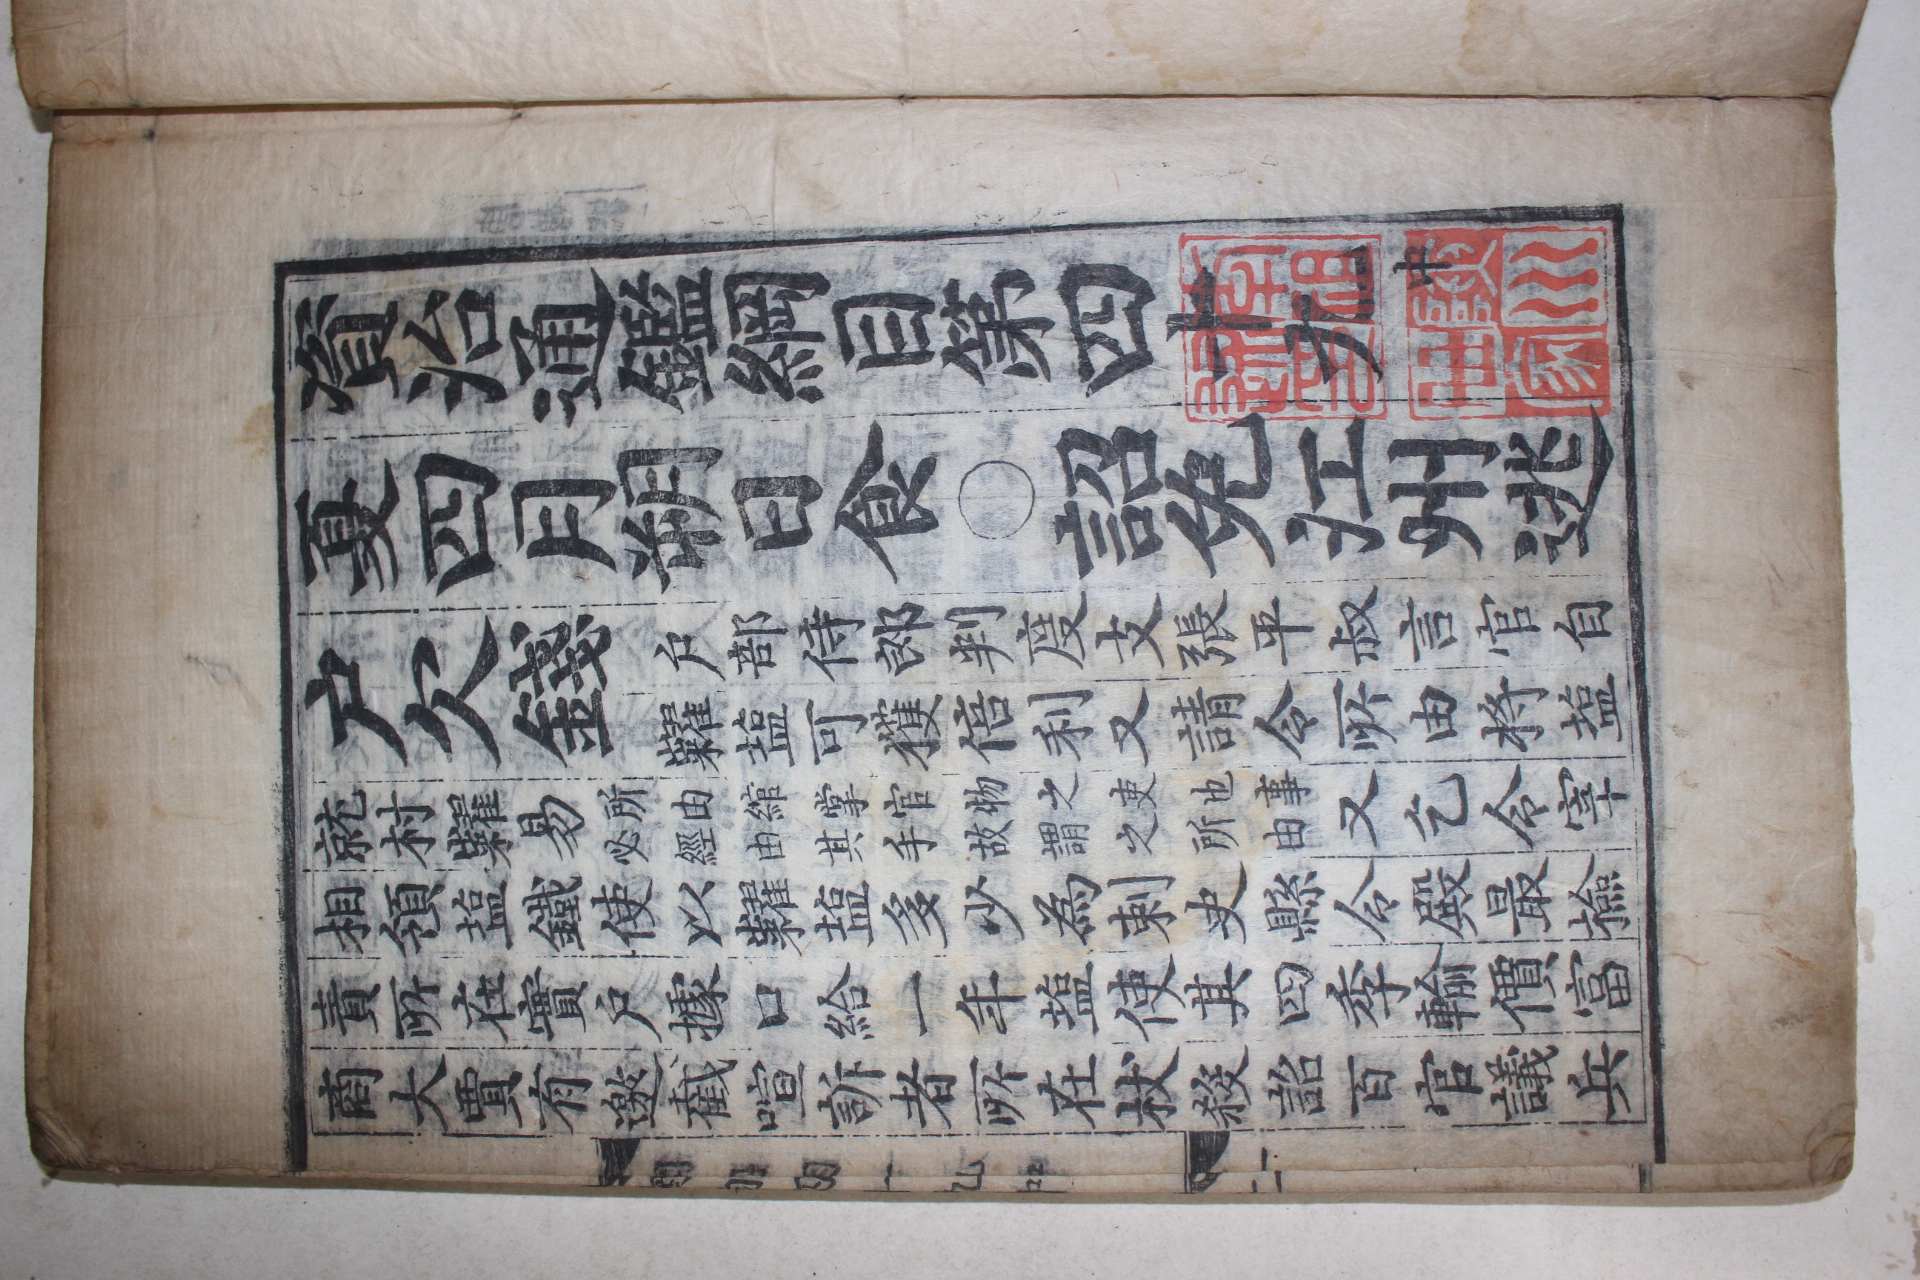 資治通鑑綱目第四十九 中
夏四月朔日食○詔免江州逃
户欠錢
户部侍郎判度支張平叔言官自
糶塩可獲倍利又請令所由將塩
就村糶易 所由綰掌官物之吏也事 必經由其手故謂之所由 又乞令宰
相領塩鐵使以糶塩多少為刺史縣令殿最檢
責所在實户據口給一年塩使其四季輸價富
商大賈有邀截喧訴者所在杖殺詔百官議兵
陜川
世家